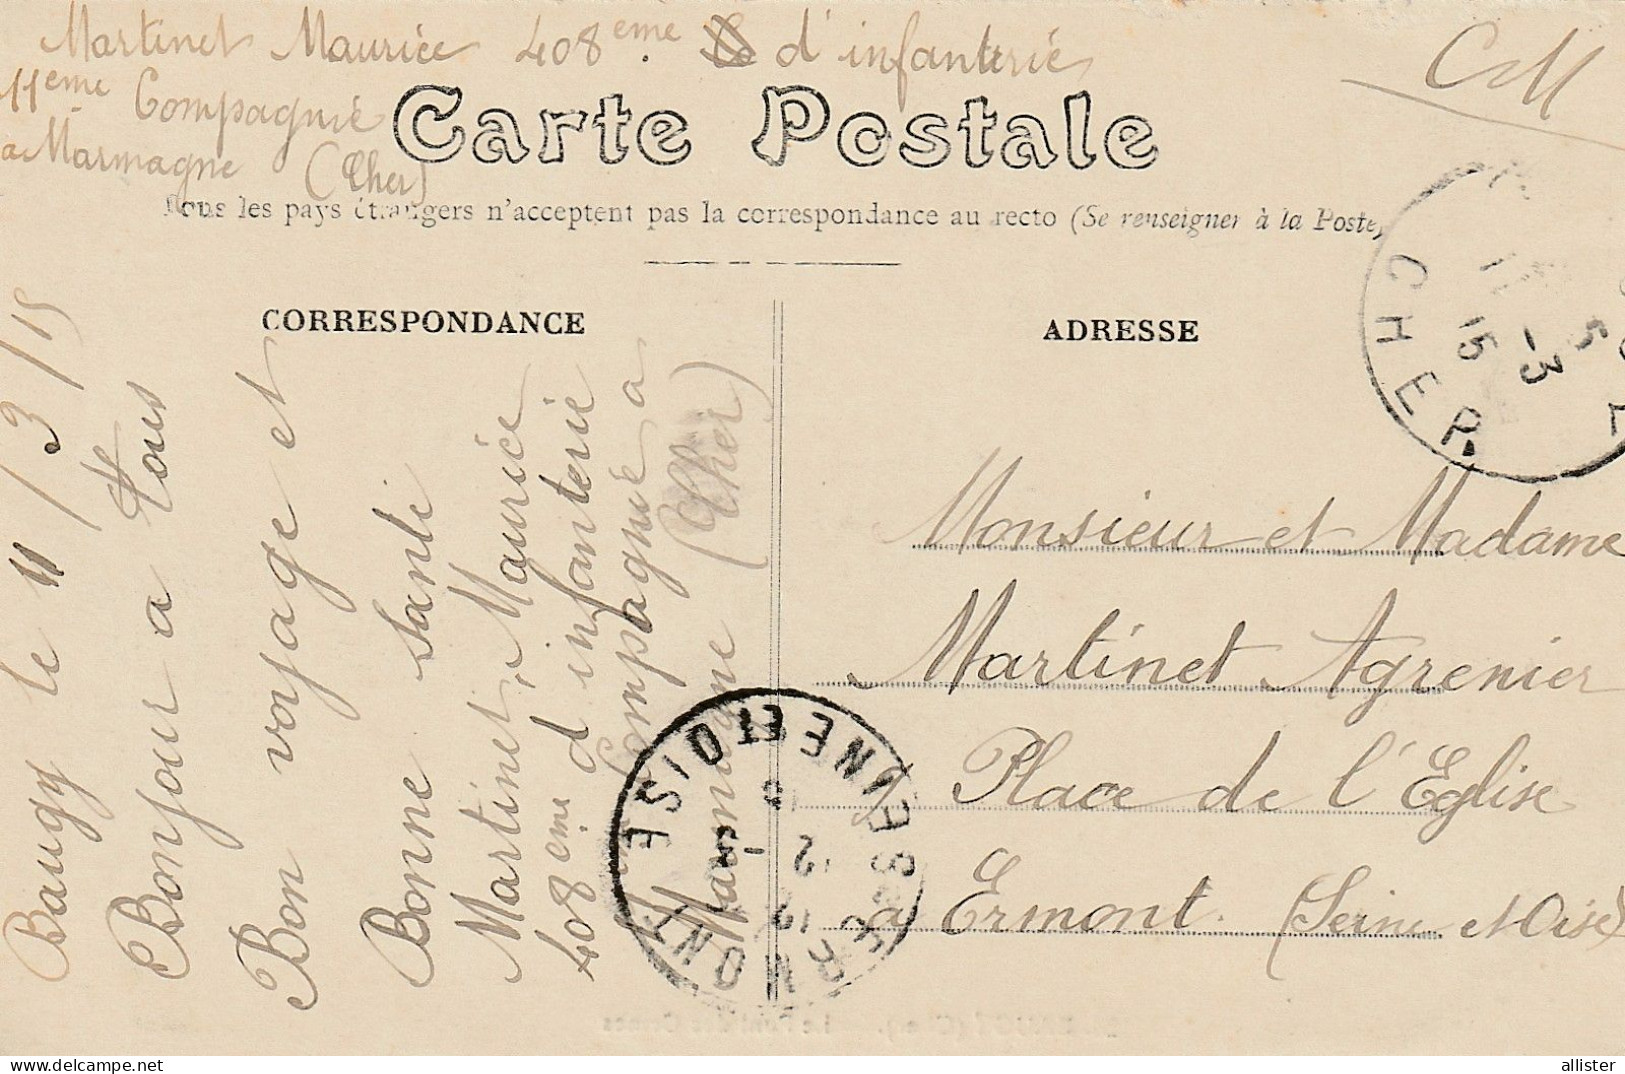 Martinet Maurice 408eme. d'infanterie
CM
11eme Compagnié
a Marmagne (Cher)
Carte Postale
Tous les pays étrangers n'acceptent pas la correspondance au recto (Se renseigner à la Poste)
CORRESPONDANCE
ADRESSE
Baugy le 11/3/15
Bonjour a tous
Bon voyage et
Bonne santé
Martinet Maurice
408eme d'infanterie
Compagnié a
Marmagne (Cher)
Monsieur et Madame
Martinet Agrenier
Place de l'Eglise
a Ermont. (Seine et Oise)
CHER
15 -3
ERMONT
SEINE ET OISE
12 -3
allister